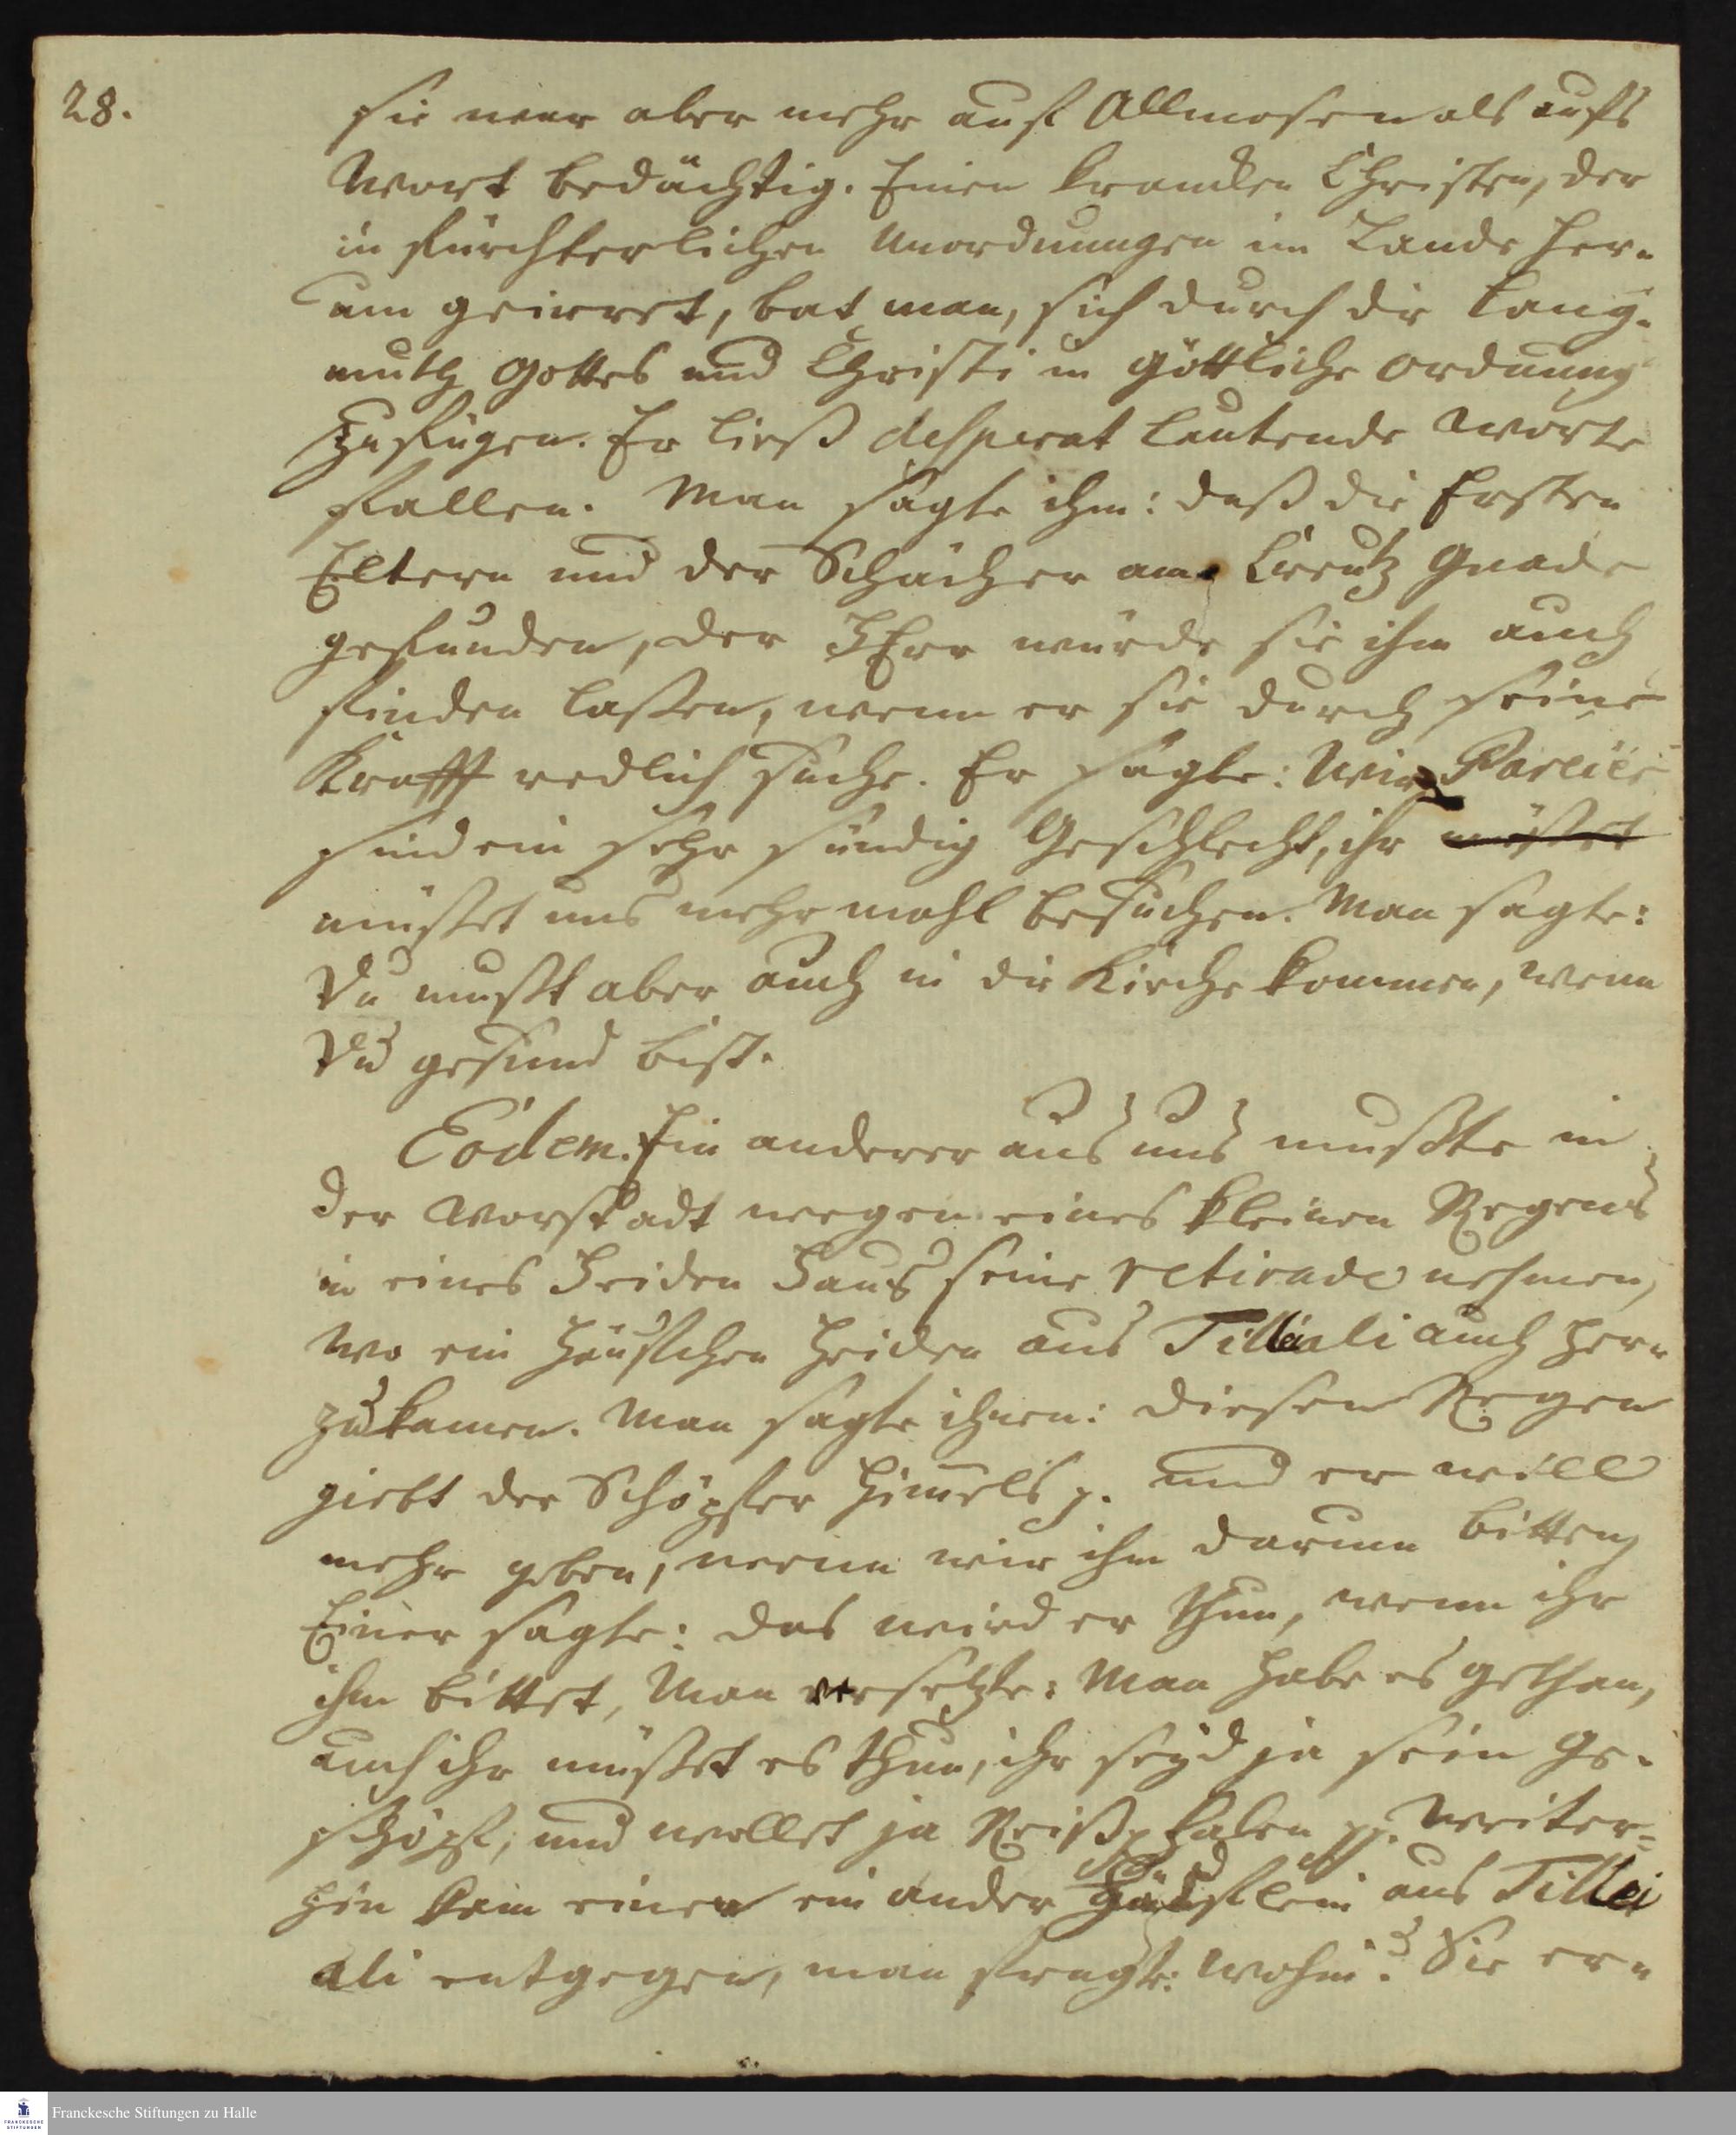 28.
sie war aber mehr auf Allmosen als aufs
Wort bedächtig. Einen krancken Christen, der
in fürchterlichen Unordnungen im Lande her-
um geirret, bat man, sich durch die Lang-
muth Gottes und Christi in göttliche Ordnung
zu fügen. Er ließ desperat lautende Worte
fallen. Man sagte ihm: daß die Ersten
Eltern und der Schächer am Creutz Gnade
gefunden, der HErr würde sie ihm auch
finden laßen, wenn er sie durch seine
Krafft redlich suche. Er sagte: Wir Pareier
sind ein sehr sündig Geschlecht, ihr müßet
müßet uns mehr mahl besuchen. Man sagte:
Du must aber auch in die Kirche kommen, wenn
Du gesund bist.
Eodem. Ein anderer aus uns mußte in
der Vorstadt wegen eines kleinen Regens
in eines Heiden Haus seine retirade nehmen,
wo ein Häufchen Heiden aus Tilleiali auch her-
zu kamen. Man sagte ihnen: diesen Regen
giebt der Schöpfer Himels p. und er will
mehr geben, wenn wir ihn darum bitten,
Einer sagte: das wird er thun, wenn ihr
ihn bittet, Man versetzte: Man habe es gethan,
auch ihr müßet es thun, ihr seyd ja sein Ge-
schöpf, und wollet ja Reiß p haben pp. Weiter-
hin kam einer ein ander Häuflein aus Tillei
ali entgegen, man fragte: wohin? Sie er-
Franckesche Stiftungen zu Halle
FRANCKESCHE
STIFTUNGEN